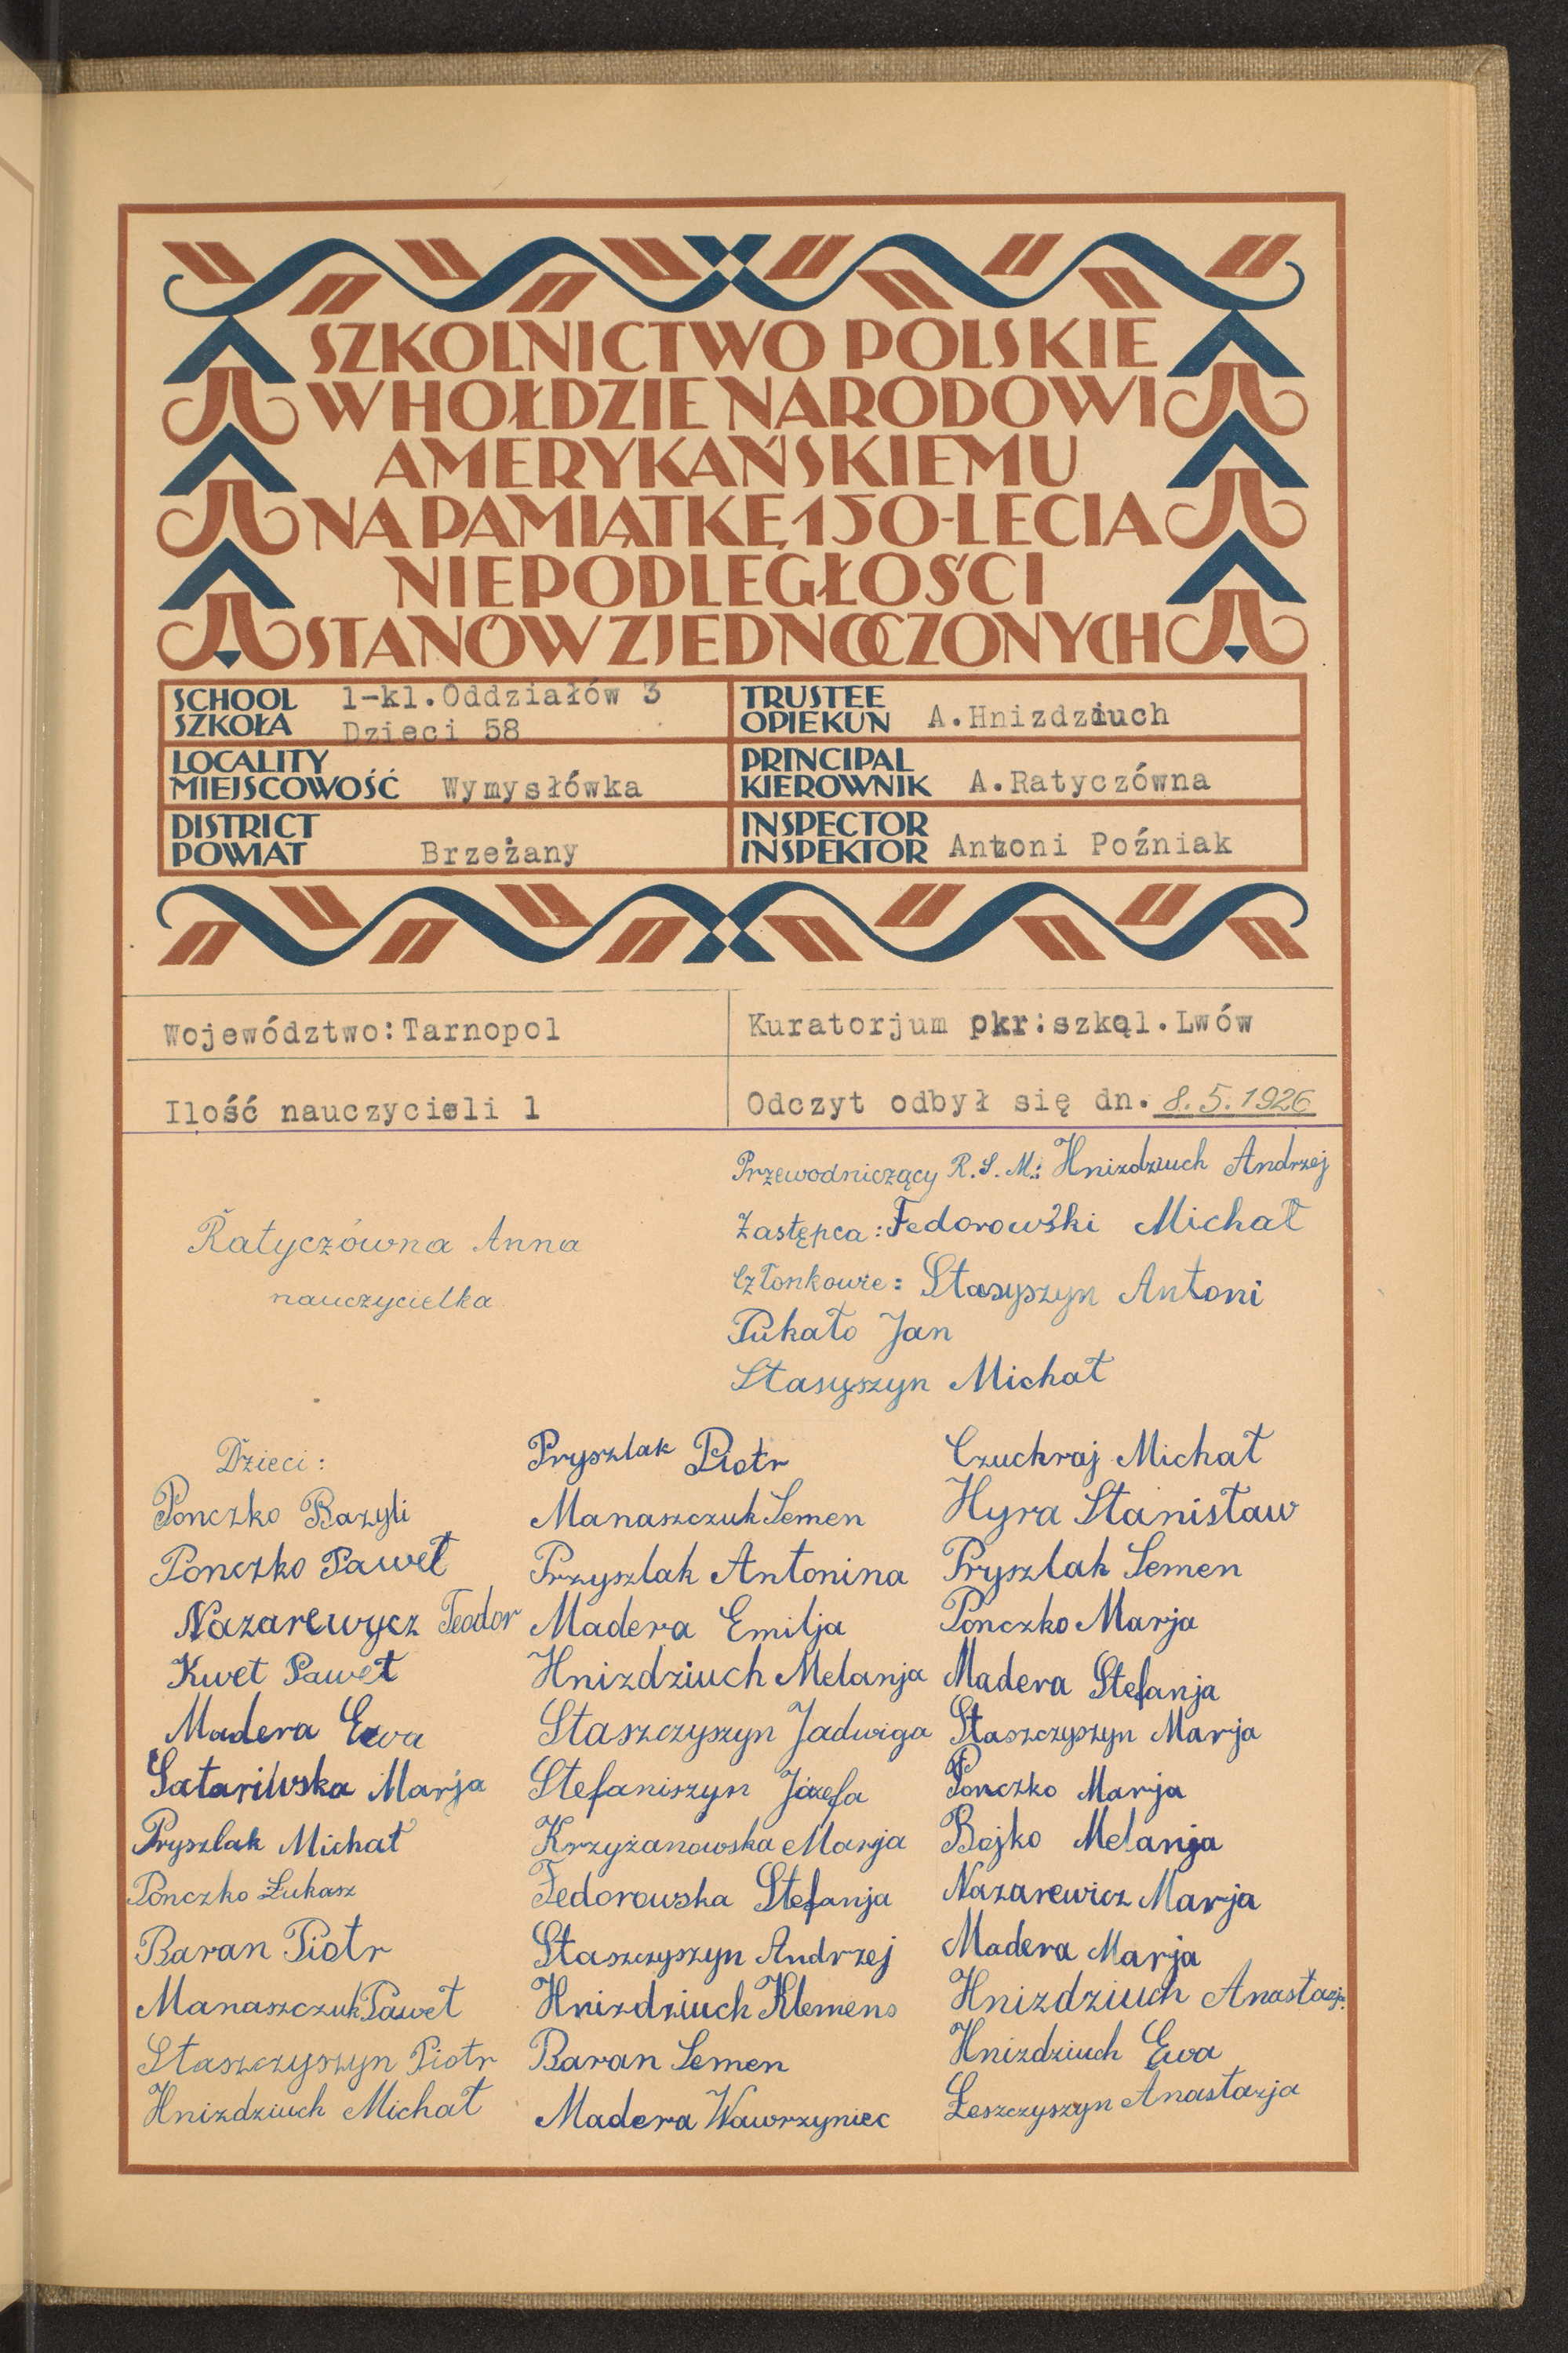 SZKOLNICTWO POLSKIE
W HOŁDZIE NARODOWI
AMERYKAŃSKIEMU
NA PAMIĄTKĘ 150-LECIA
NIEPODLEGŁOŚCI
STANÓW ZJEDNOCZONYCH
SCHOOL
SZKOŁA
1-kl.Oddziałów 3
Dzieci 58
TRUSTEE
OPIEKUN A.Hnizdziuch
LOCALITY
MIEJSCOWOŚĆ Wymysłówka
PRINCIPAL
KIEROWNIK A.Ratyczówna
DISTRICT
POWIAT Brzeżany
INSPECTOR
INSPEKTOR Antoni Poźniak
Województwo:Tarnopol
Kuratorjum okr:szkol.Lwów
Ilość nauczycieli 1
Odczyt odbył się dn. 8.5.1926
Przewodniczący R.S.M.: Hnizdziuch Andrzej
Zastępca: Fedorowski Michał
Członkowie: Stasyszyn Antoni
Pukało Jan
Stasyszyn Michał
Ratyczówna Anna
nauczycielka
Dzieci:
Ponczko Bazyli
Ponczko Paweł
Nazarewycz Teodor
Kwet Paweł
Madera Ewa
Satariwska Marja
Pryszlak Michał
Ponczko Łukasz
Baran Piotr
Manaszczuk Paweł
Staszczyszyn Piotr
Hnizdziuch Michał
Pryszlak Piotr
Manaszczuk Semen
Przyszlak Antonina
Madera Emilja
Hnizdziuch Melanja
Staszczyszyn Jadwiga
Stefaniszyn Józefa
Krzyżanowska Marja
Fedorowska Stefanja
Staszczyszyn Andrzej
Hnizdziuch Klemens
Baran Semen
Madera Wawrzyniec
Czuchraj Michał
Hyra Stanisław
Pryszlak Semen
Ponczko Marja
Madera Stefanja
Staszczyszyn Marja
Ponczko Marja
Bojko Melanja
Nazarewicz Marja
Madera Marja
Hnizdziuch Anastazja
Hnizdziuch Ewa
Leszczyszyn Anastazja